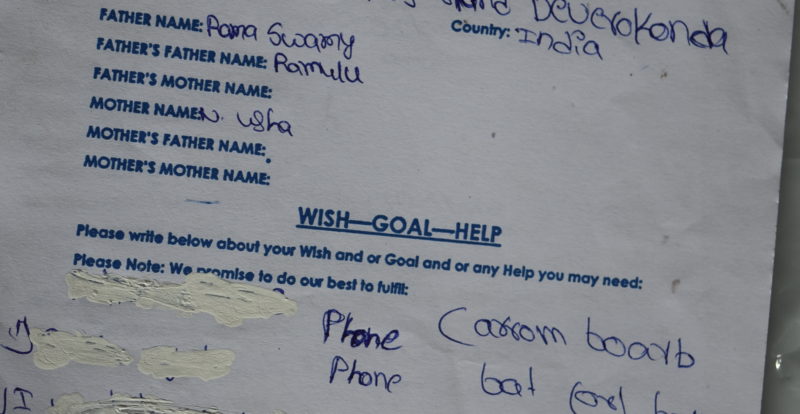 Deverokonda
FATHER NAME: Rama Swamy
Country: India
FATHER'S FATHER NAME: Ramulu
FATHER'S MOTHER NAME:
MOTHER NAME: N. Usha
MOTHER'S FATHER NAME:
MOTHER'S MOTHER NAME:
WISH—GOAL—HELP
Please write below about your Wish and or Goal and or any Help you may need:
Please Note: We promise to do our best to fulfil:
1) Phone Carrom boarb
Phone bat
I